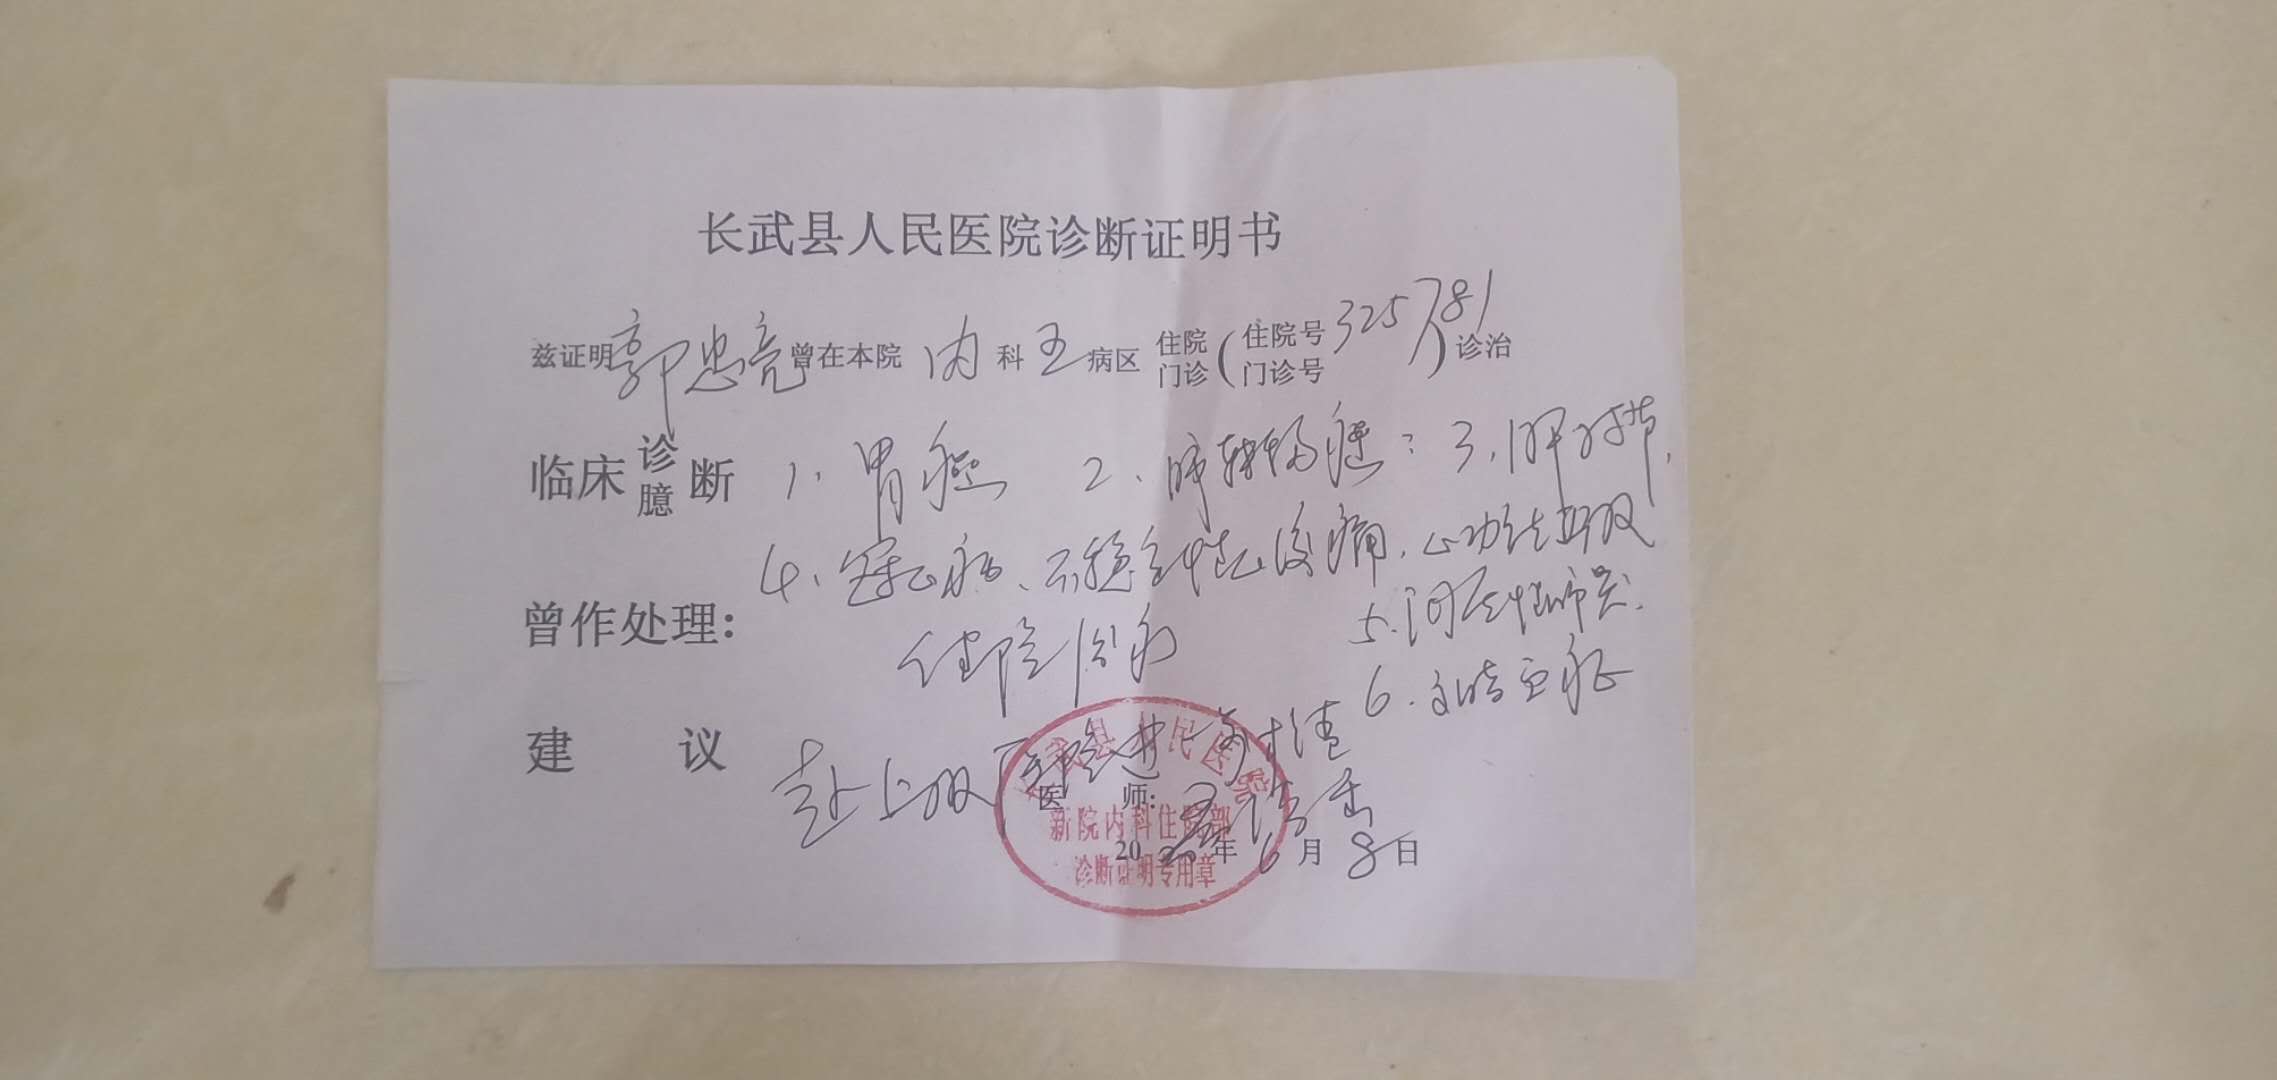 长武县人民医院诊断证明书
兹证明郭忠亮曾在本院 内 科 五 病区 住院 门诊 ( 住院号 门诊号 325781 ) 诊治
临床 诊 臆 断 1、胃癌 2、肺转移癌? 3、肺结节、
4、冠心病、不稳定性心绞痛、心功能Ⅲ级
5.间质性肺炎.
曾作处理: 住院治疗
6.
建 议 赴上级医院进一步检查
医 师:
20 年 6 月 8 日
长武县人民医院
新院内科住院部
诊断证明专用章